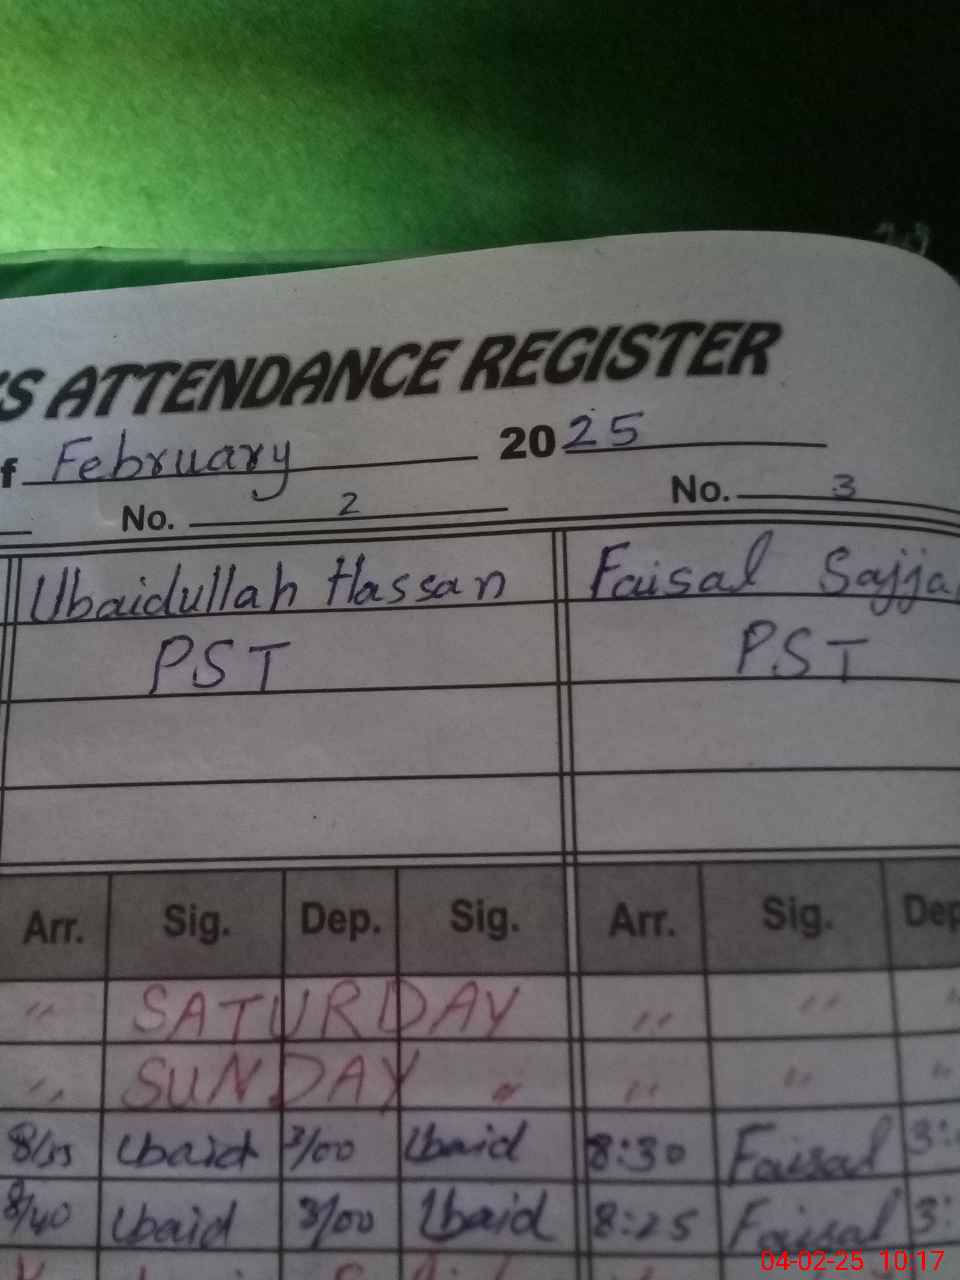 'S ATTENDANCE REGISTER
f February 2025
No. 2 No. 3
Ubaidullah Hassan Faisal Sajja
PST PST
Arr. Sig. Dep. Sig. Arr. Sig. Dep
" SATURDAY " " "
" SUNDAY " " " "
Ubaid 3/00 Ubaid 8:30 Faisal 3:
8/40 Ubaid 3/00 Ubaid 8:25 Faisal 3:
04-02-25 10:17